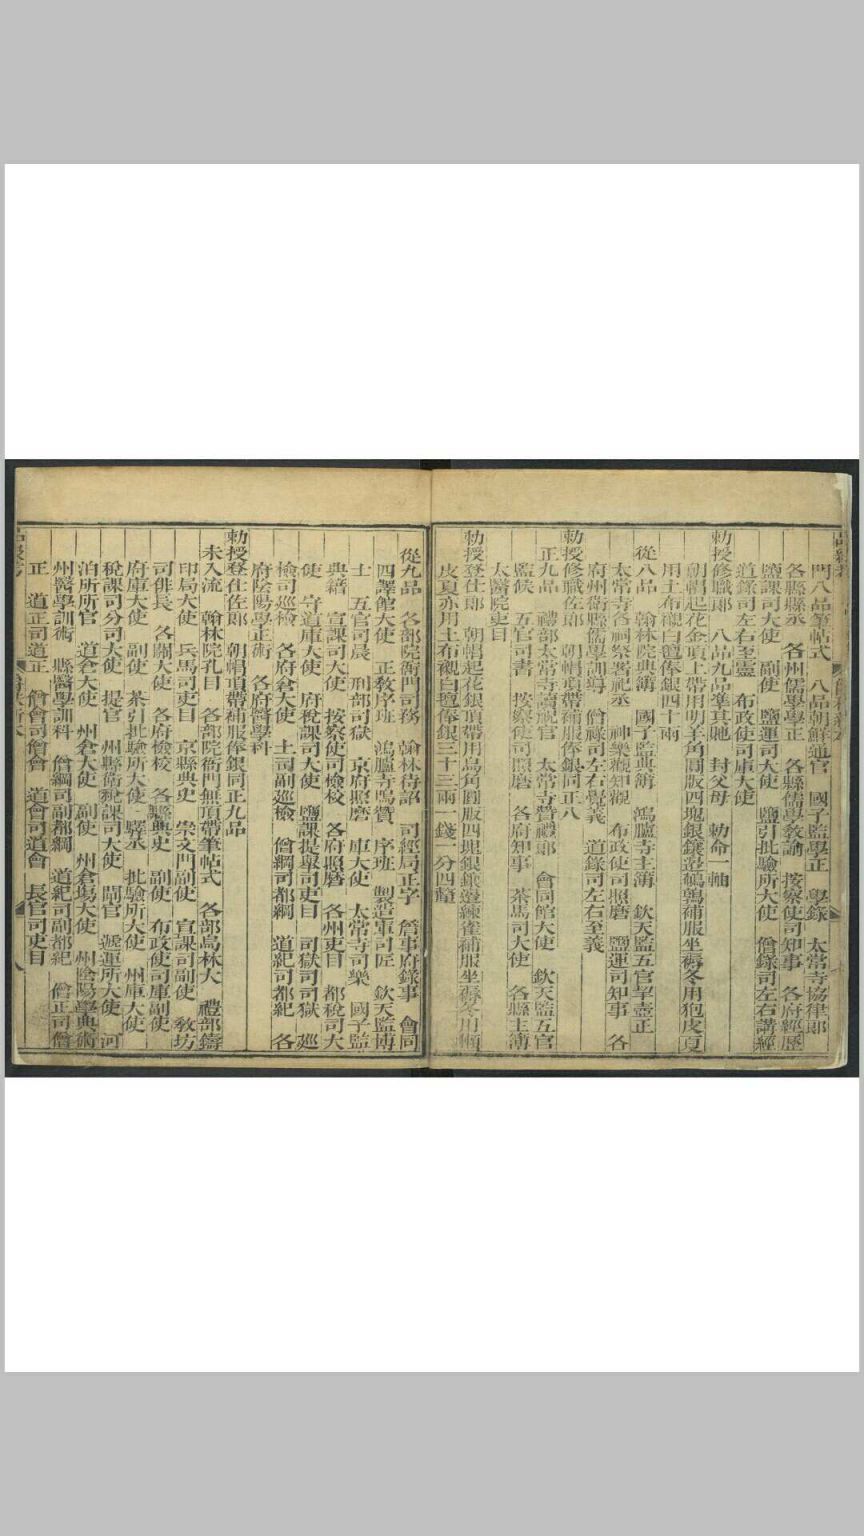 門八品筆帖式 八品朝鮮通官 國子監學正 學錄 太常寺協律郎
各縣縣丞 各州儒學學正 各縣儒學教諭 按察使司知事 各府經歷
鹽課司大使 副使 鹽運司大使 鹽引批驗所大使 僧錄司左右講經
道錄司左右至靈 布政使司庫大使
勅授修職郎 八品九品準其貤 封父母 勅命一軸
朝帽起花金頂上帶用明羊角圓版四塊銀鑲邊鵪鶉補服坐褥冬用狍皮夏
用土布襯白氊俸銀四十兩
從八品 翰林院典簿 國子監典簿 鴻臚寺主簿 欽天監五官挈壺正
太常寺各祠祭署祀丞 神樂觀知觀 布政使司照磨 鹽運司知事 各
府州衛縣儒學訓導 僧錄司左右覺義 道錄司左右至義
勅授修職佐郎 朝帽頂帶補服俸銀同正八
正九品 禮部太常寺讀祝官 太常寺贊禮郎 會同館大使 欽天監五官
監候 五官司書 按察使司照磨 各府知事 茶馬司大使 各縣主簿
太醫院吏目
勅授登仕郎 朝帽起花銀頂帶用烏角圓版四塊銀鑲邊練雀補服坐褥冬用獺
皮夏亦用土布襯白氊俸銀三十三兩一錢一分四釐
從九品 各部院衙門司務 翰林待詔 司經局正字 詹事府錄事 會同
四譯館大使 正教序班 鴻臚寺鳴贊 序班 製造軍司匠 欽天監博
士 五官司晨 刑部司獄 京府照磨 庫大使 太常寺司樂 國子監
典籍 宣課司大使 按察使司檢校 各府照磨 各州吏目 都稅司大
使 守道庫大使 府稅課司大使 鹽課提舉司吏目 司獄司司獄 巡
檢司巡檢 各府倉大使 土司副巡檢 僧綱司都綱 道紀司都紀 各
府陰陽學正術 各府醫學科
勅授登仕佐郎 朝帽頂帶補服俸銀同正九品
未入流 翰林院孔目 各部院衙門無頂帶筆帖式 各部烏林大 禮部鑄
印局大使 兵馬司吏目 京縣典史 崇文門副使 宣課司副使 教坊
司俳長 各關大使 各府檢校 各縣典史 副使 布政使司庫副使
府庫大使 副使 茶引批驗所大使 驛丞 批驗所大使 州庫大使
稅課司分司大使 提官 州縣衛稅課司大使 閘官 遞運所大使 河
泊所所官 道倉大使 州倉大使 副使 州倉場大使 州陰陽學典術
州醫學訓術 縣醫學訓科 僧綱司副都綱 道紀司副都紀 僧正司僧
正 道正司道正 僧會司僧會 道會司道會 長官司吏目